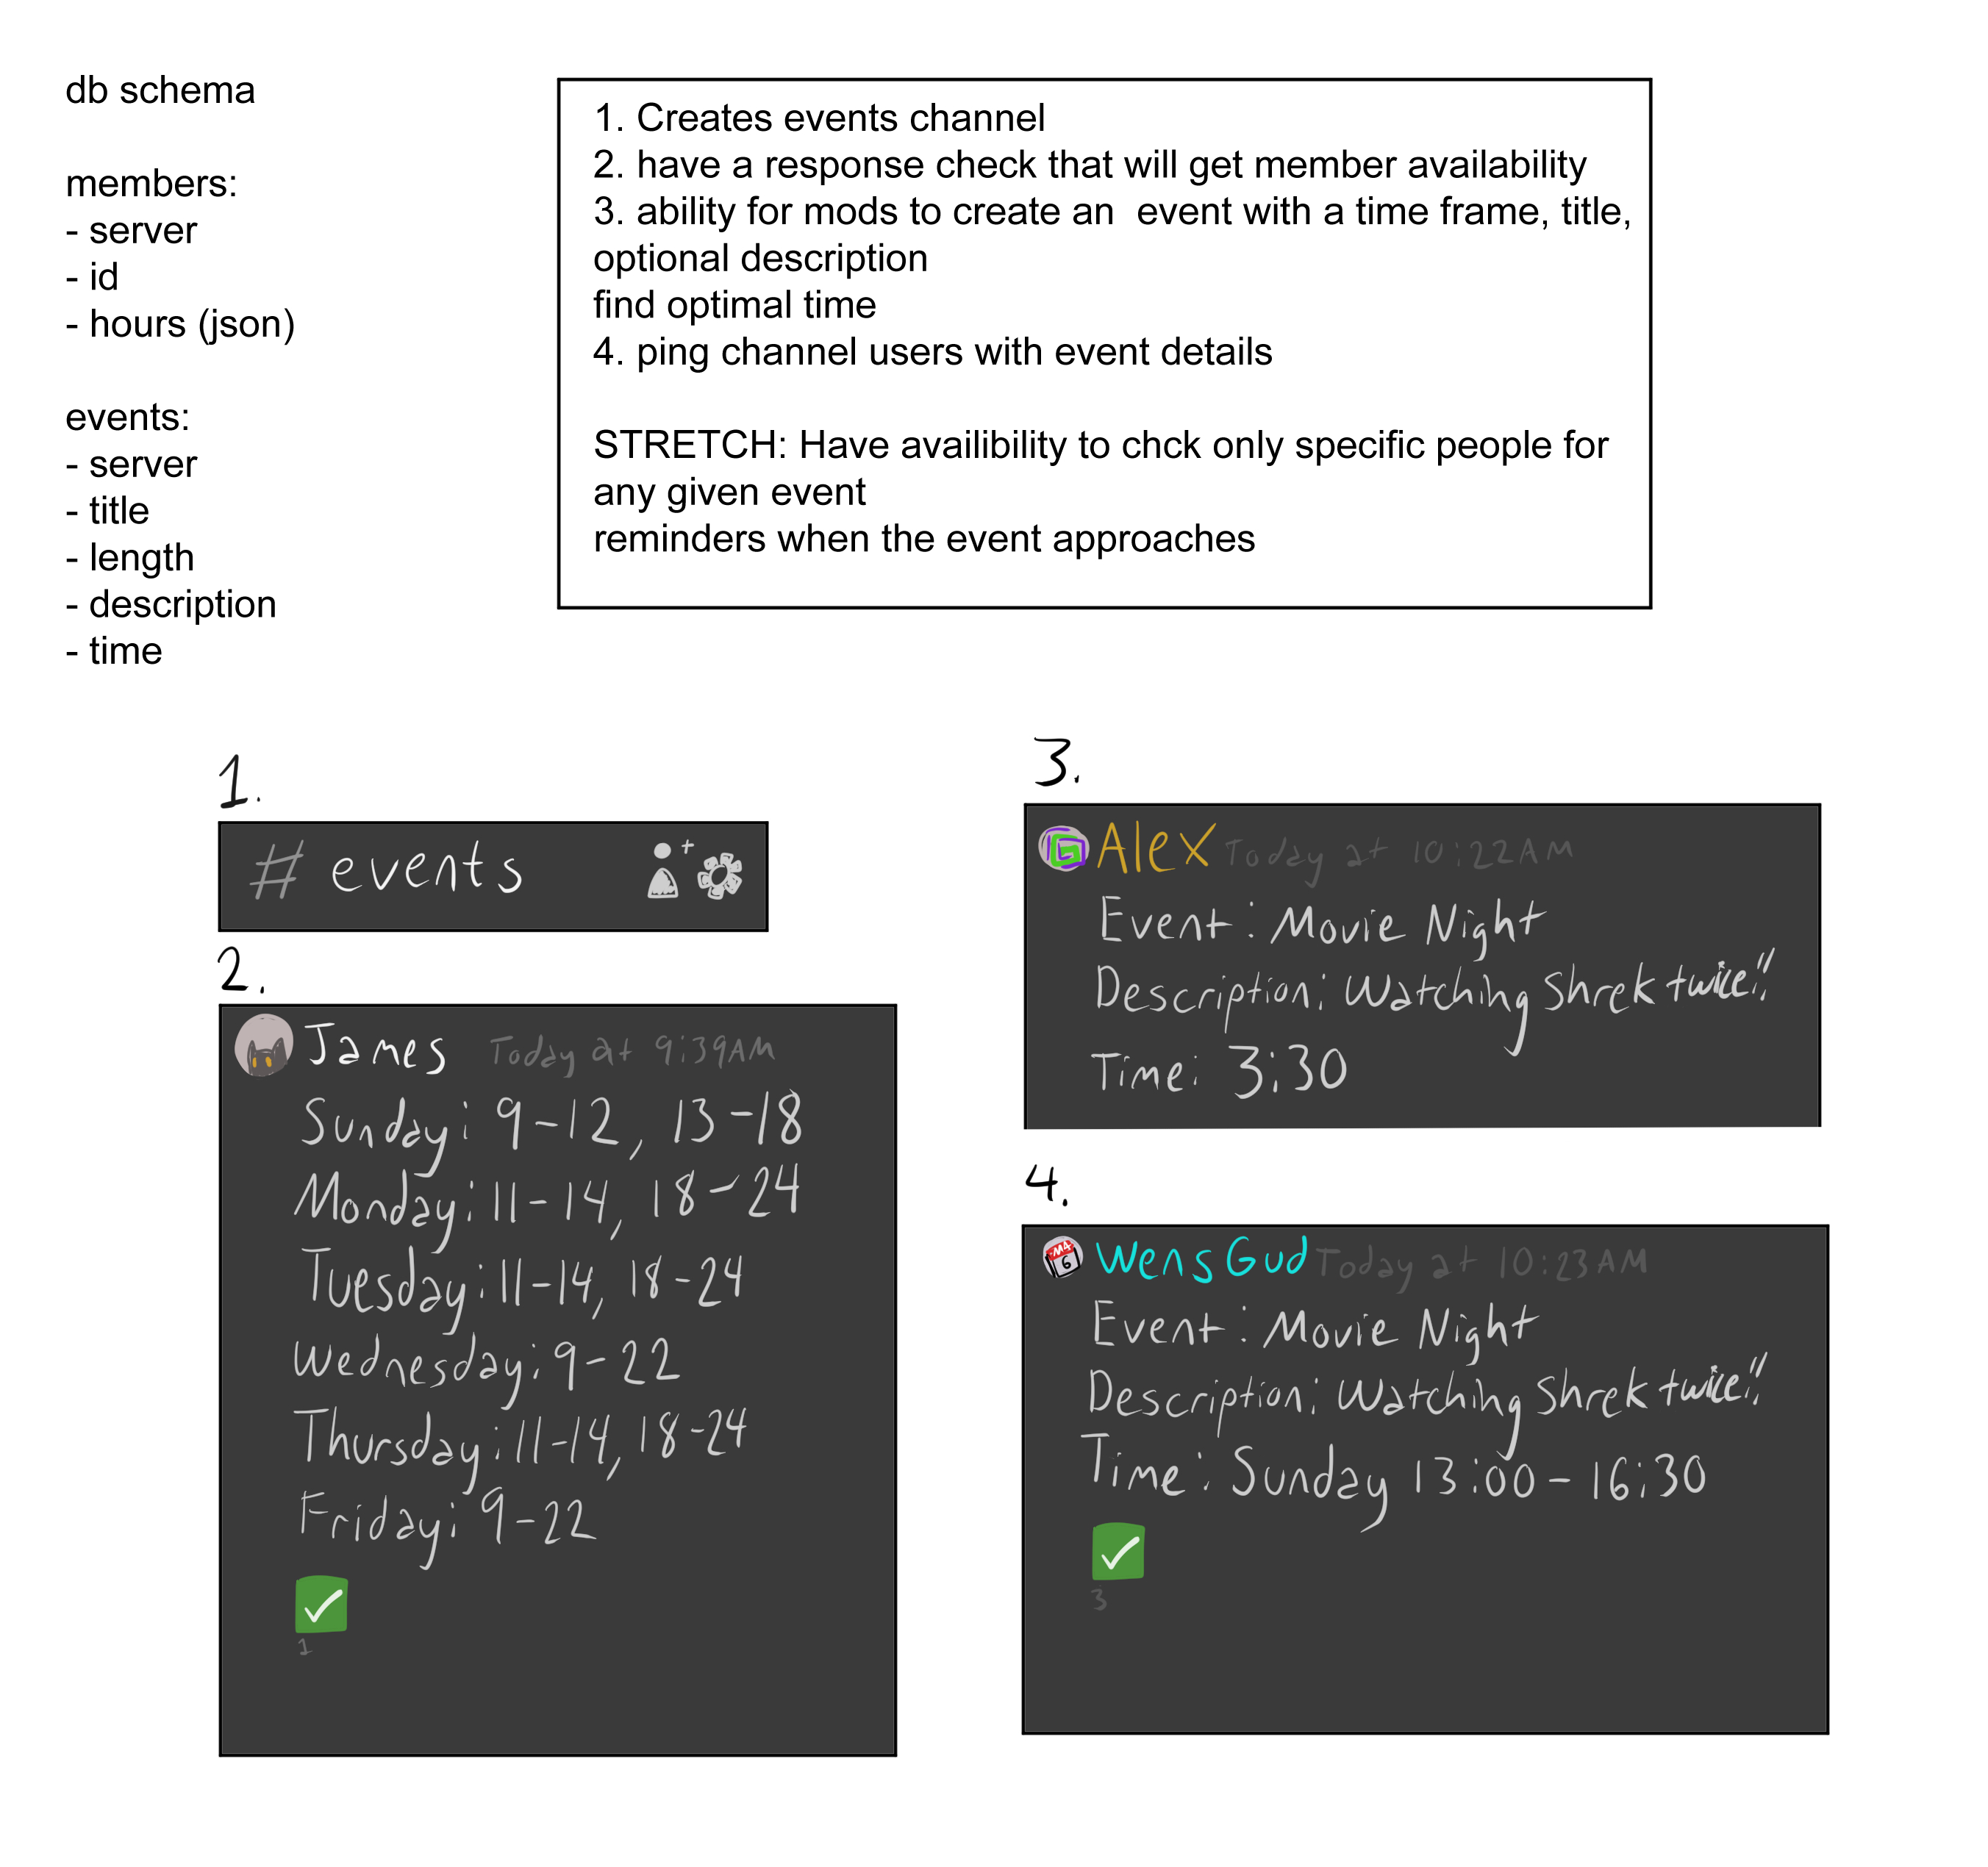 db schema
members:
- server
- id
- hours (json)
events:
- server
- title
- length
- description
- time
1. Creates events channel
2. have a response check that will get member availability
3. ability for mods to create an  event with a time frame, title,
optional description
find optimal time
4. ping channel users with event details
STRETCH: Have availibility to chck only specific people for
any given event
reminders when the event approaches
1.
# events
2.
James Today at 9:39AM
Sunday: 9-12, 13-18
Monday: 11-14, 18-24
Tuesday: 11-14, 18-24
Wednesday: 9-22
Thursday: 11-14, 18-24
Friday: 9-22
1
3.
Alex Today at 10:22AM
Event: Movie Night
Description: Watching Shrek twice!!
Time: 3:30
4.
M4
6
WensGud Today at 10:23AM
Event: Movie Night
Description: Watching Shrek twice!!
Time: Sunday 13:00-16:30
3